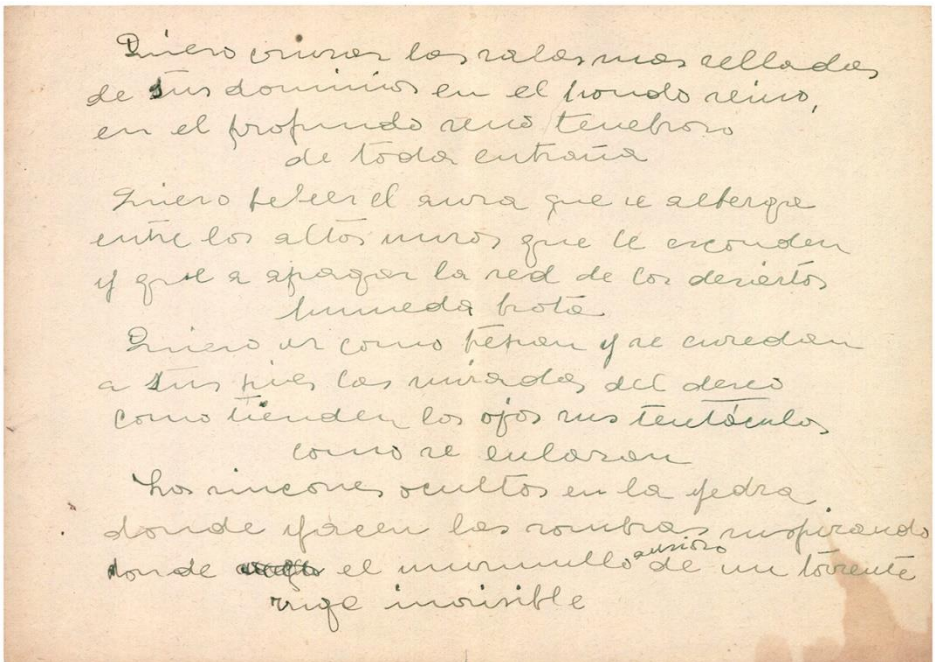 Quiero cruzar las salas mas selladas
de tus dominios en el hondo reino,
en el profundo reino tenebroso
de toda entraña
Quiero beber el aura que se alberga
entre los altos muros que te esconden
y que a apagar la sed de los desiertos
humeda brota
Quiero ver como trepan y se enredan
a tus pies las miradas del deseo
como tienden los ojos sus tentáculos
como se enlazan
Los rincones ocultos en la yedra
donde yacen las sombras suspirando
donde el murmullo ansioso de un torrente
ruge invisible